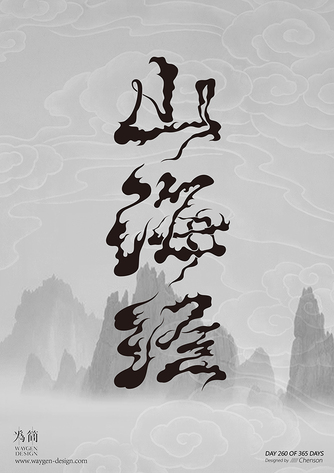 山海经
为简
WAYGEN
DESIGN
www.waygen-design.com
DAY 260 OF 365 DAYS
Designed by Chenson